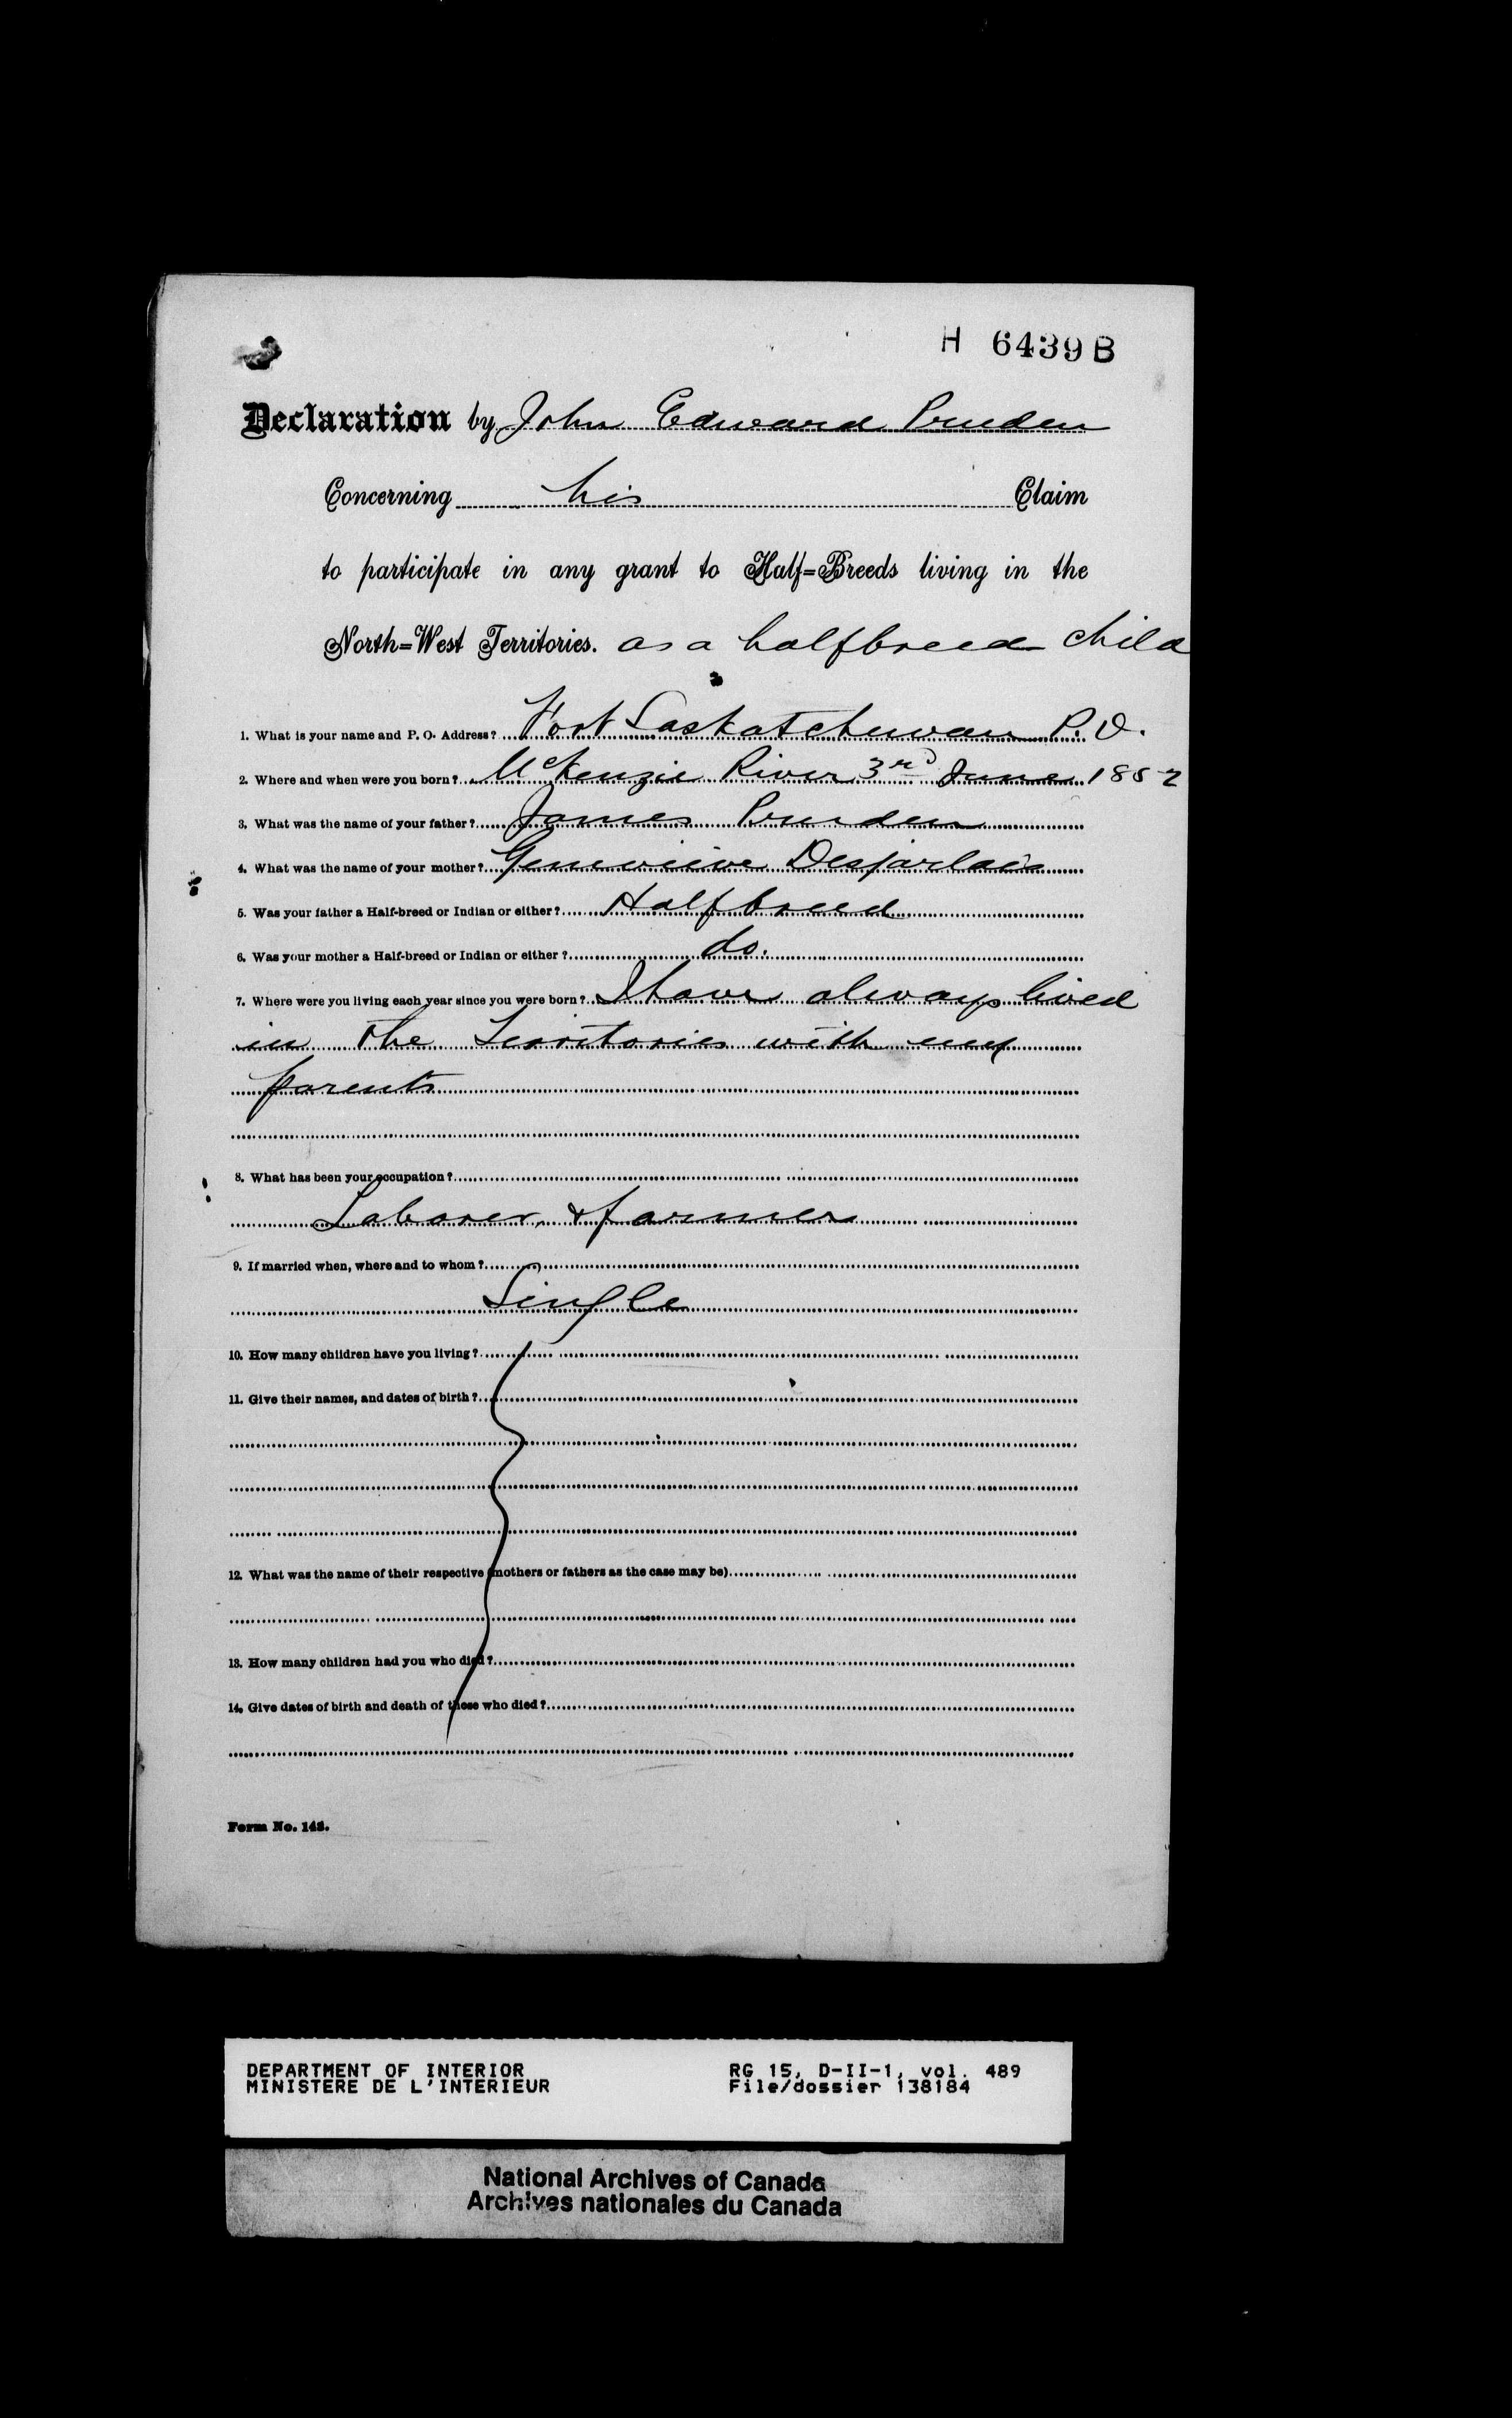 H 6439 B
Declaration by John Edward Pruden
Concerning his Claim
to participate in any grant to Half=Breeds living in the
North=West Territories. as a halfbreed child
1. What is your name and P. O. Address? Fort Saskatchewan P.O.
2. Where and when were you born? McKenzie River 3rd June 1857
3. What was the name of your father? James Pruden
4. What was the name of your mother? Genevieve Desjarlais
5. Was your father a Half-breed or Indian or either? Halfbreed
6. Was your mother a Half-breed or Indian or either? do.
7. Where were you living each year since you were born? I have always lived
in the Territories with my
parents
8. What has been your occupation?
Laborer & farmer
9. If married when, where and to whom?
Single
10. How many children have you living?
11. Give their names, and dates of birth?
12. What was the name of their respective (mothers or fathers as the case may be)
13. How many children had you who died?
14. Give dates of birth and death of those who died?
Form No. 143.
DEPARTMENT OF INTERIOR RG 15, D-II-1, vol. 489
MINISTERE DE L'INTERIEUR File/dossier 138184
National Archives of Canada
Archives nationales du Canada